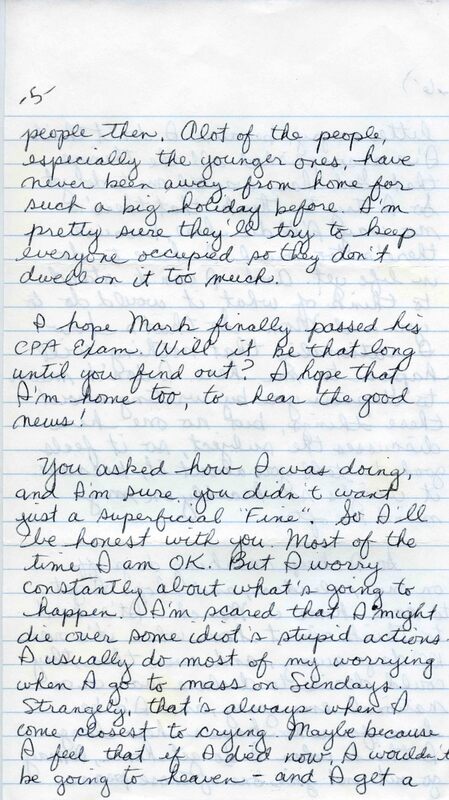 -5-
people then. Alot of the people,
especially the younger ones, have
never been away from home for
such a big holiday before. I'm
pretty sure they'll try to keep
everyone occupied so they don't
dwell on it too much.
I hope Mark finally passed his
CPA Exam. Will it be that long
until you find out? I hope that
I'm home too, to hear the good
news!
You asked how I was doing,
and I'm sure you didn't want
just a superficial "Fine". So I'll
be honest with you. Most of the
time I am OK. But I worry
constantly about what's going to
happen. I'm scared that I might
die over some idiot's stupid actions.
I usually do most of my worrying
when I go to mass on Sundays.
Strangely, that's always when I
come closest to crying. Maybe because
I feel that if I died now, I wouldn't
be going to heaven - and I get a